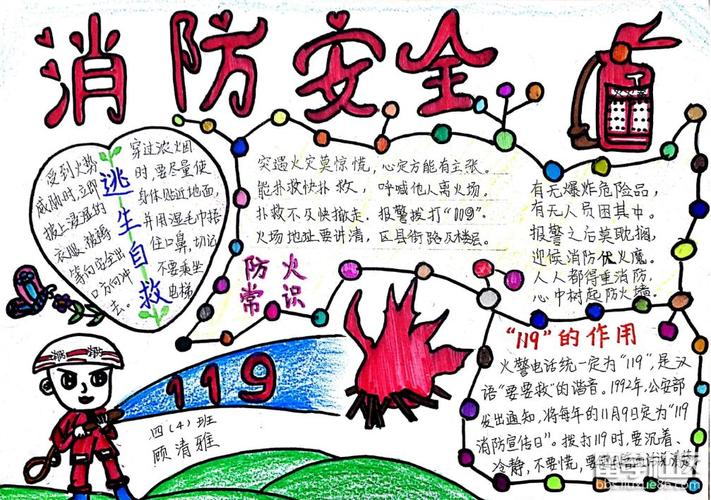 消防安全
受到火势
威胁时,立即
披上浸湿的
衣服、被褥
等向安全出
口方向冲
去。
逃生自救
穿过浓烟
时,要尽量使
身体贴近地面,
并用湿毛巾捂
住口鼻,切记
不要乘坐
电梯
突遇火灾莫惊慌,心定方能有主张。
能扑救快扑救,呼喊他人离火场。
扑救不及快撤走,报警拨打"119"。
火场地址要讲清,区县街路及楼层。
有无爆炸危险品,
有无人员困其中。
报警之后莫耽搁,
迎候消防伏火魔。
人人都得重消防,
心中树起防火墙。
防火
常识
"119"的作用
火警电话统一定为"119",是汉
语"要要救"的谐音。1992年,公安部
发出通知,将每年的11月9日定为"119
消防宣传日"。拨打119时,要沉着、
冷静,不要慌,要
消防
119
四(4)班
顾清雅
留学社区
bbs.liuxue86.com